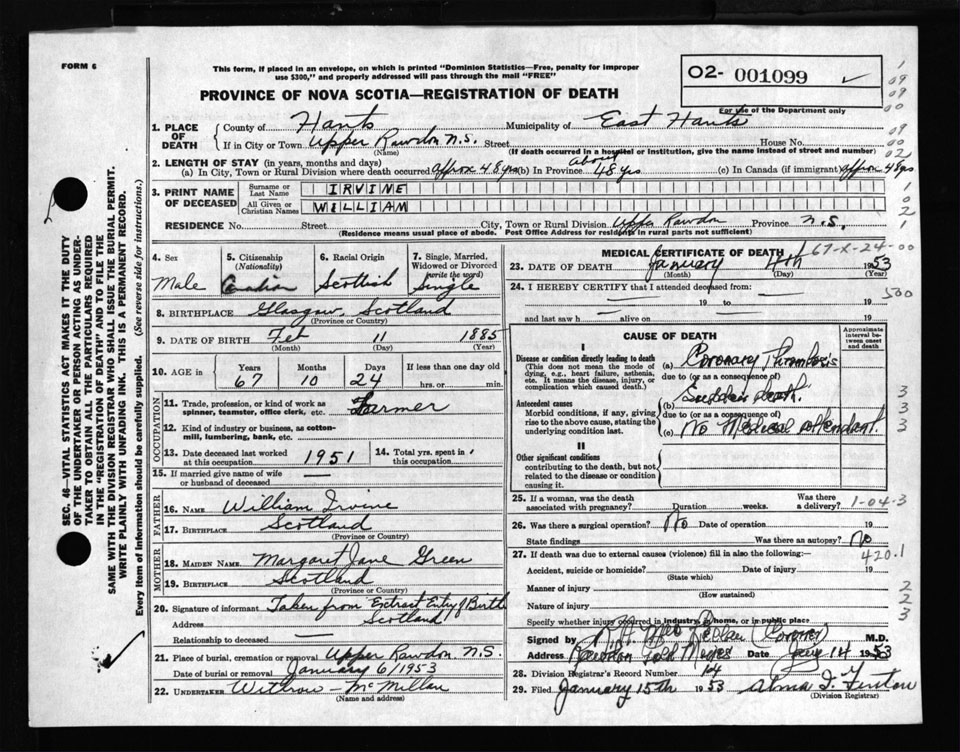 FORM 6
This form, if placed in an envelope, on which is printed "Dominion Statistics—Free, penalty for improper
use $300," and properly addressed will pass through the mail "FREE"
O2- 001099
For use of the Department only
PROVINCE OF NOVA SCOTIA—REGISTRATION OF DEATH
1. PLACE OF DEATH
County of Hants Municipality of East Hants
If in City or Town Upper Rawdon N.S. Street House No.
(Name) (If death occurred in a hospital or institution, give the name instead of street and number)
2. LENGTH OF STAY (in years, months and days)
(a) In City, Town or Rural Division where death occurred approx 48 yrs (b) In Province about 48 yrs (c) In Canada (if immigrant) approx 48 yrs
3. PRINT NAME OF DECEASED
Surname or Last Name IRVINE
All Given or Christian Names WILLIAM
RESIDENCE No. Street City, Town or Rural Division Upper Rawdon Province N.S.
(Residence means usual place of abode. Post Office Address for residents in rural parts not sufficient)
4. Sex Male
5. Citizenship (Nationality) Canadian
6. Racial Origin Scottish
7. Single, Married, Widowed or Divorced (write the word) Single
8. BIRTHPLACE Glasgow, Scotland
(Province or Country)
9. DATE OF BIRTH Feb 11 1885
(Month) (Day) (Year)
10. AGE in Years 67 Months 10 Days 24 If less than one day old hrs. or min.
OCCUPATION
11. Trade, profession, or kind of work as spinner, teamster, office clerk, etc. Farmer
12. Kind of industry or business, as cotton-mill, lumbering, bank, etc.
13. Date deceased last worked at this occupation 1951 14. Total yrs. spent in this occupation
15. If married give name of wife or husband of deceased —
FATHER
16. NAME William Irvine
17. BIRTHPLACE Scotland
(Province or Country)
MOTHER
18. MAIDEN NAME Margaret Jane Green
19. BIRTHPLACE Scotland
(Province or Country)
20. Signature of informant Taken from Extract Entry of Birth
Address Scotland
Relationship to deceased —
21. Place of burial, cremation or removal Upper Rawdon N.S.
Date of burial or removal January 6/1953
22. UNDERTAKER Withrow - McMillan
(Name and address)
MEDICAL CERTIFICATE OF DEATH
67-X-24-00
23. DATE OF DEATH January 1953
(Month) (Day) (Year)
24. I HEREBY CERTIFY that I attended deceased from:
500
— 19 to — 19
and last saw h alive on 19
CAUSE OF DEATH
Approximate interval between onset and death
I
Disease or condition directly leading to death
(This does not mean the mode of dying, e.g., heart failure, asthenia, etc. It means the disease, injury, or complication which caused death.)
(a) Coronary Thrombosis
due to (or as a consequence of)
Antecedent causes
Morbid conditions, if any, giving rise to the above cause, stating the underlying condition last.
(b) Sudden death.
due to (or as a consequence of)
(c) No Medical attendant.
II
Other significant conditions
contributing to the death, but not related to the disease or condition causing it.
25. If a woman, was the death associated with pregnancy? Duration weeks. Was there a delivery?
1-04-3
26. Was there a surgical operation? No Date of operation 19
State findings Was there an autopsy? No
420.1
27. If death was due to external causes (violence) fill in also the following:—
Accident, suicide or homicide? Date of injury 19
(State which)
Manner of injury
(How sustained)
Nature of injury
Specify whether injury occurred in industry, in home, or in public place
Signed by (Coroner) M.D.
Address Rawdon Gold Mines Date Jany 14 1953
28. Division Registrar's Record Number 14
29. Filed January 15th 1953 Alma I. Fenton
(Division Registrar)
SEC. 46—VITAL STATISTICS ACT MAKES IT THE DUTY
OF THE UNDERTAKER OR PERSON ACTING AS UNDER-
TAKER TO OBTAIN ALL THE PARTICULARS REQUIRED
IN THE "REGISTRATION OF DEATH" AND TO FILE THE
SAME WITH THE DIVISION REGISTRAR WHO SHALL ISSUE THE BURIAL PERMIT.
WRITE PLAINLY WITH UNFADING INK. THIS IS A PERMANENT RECORD.
Every item of information should be carefully supplied. (See reverse side for instructions.)